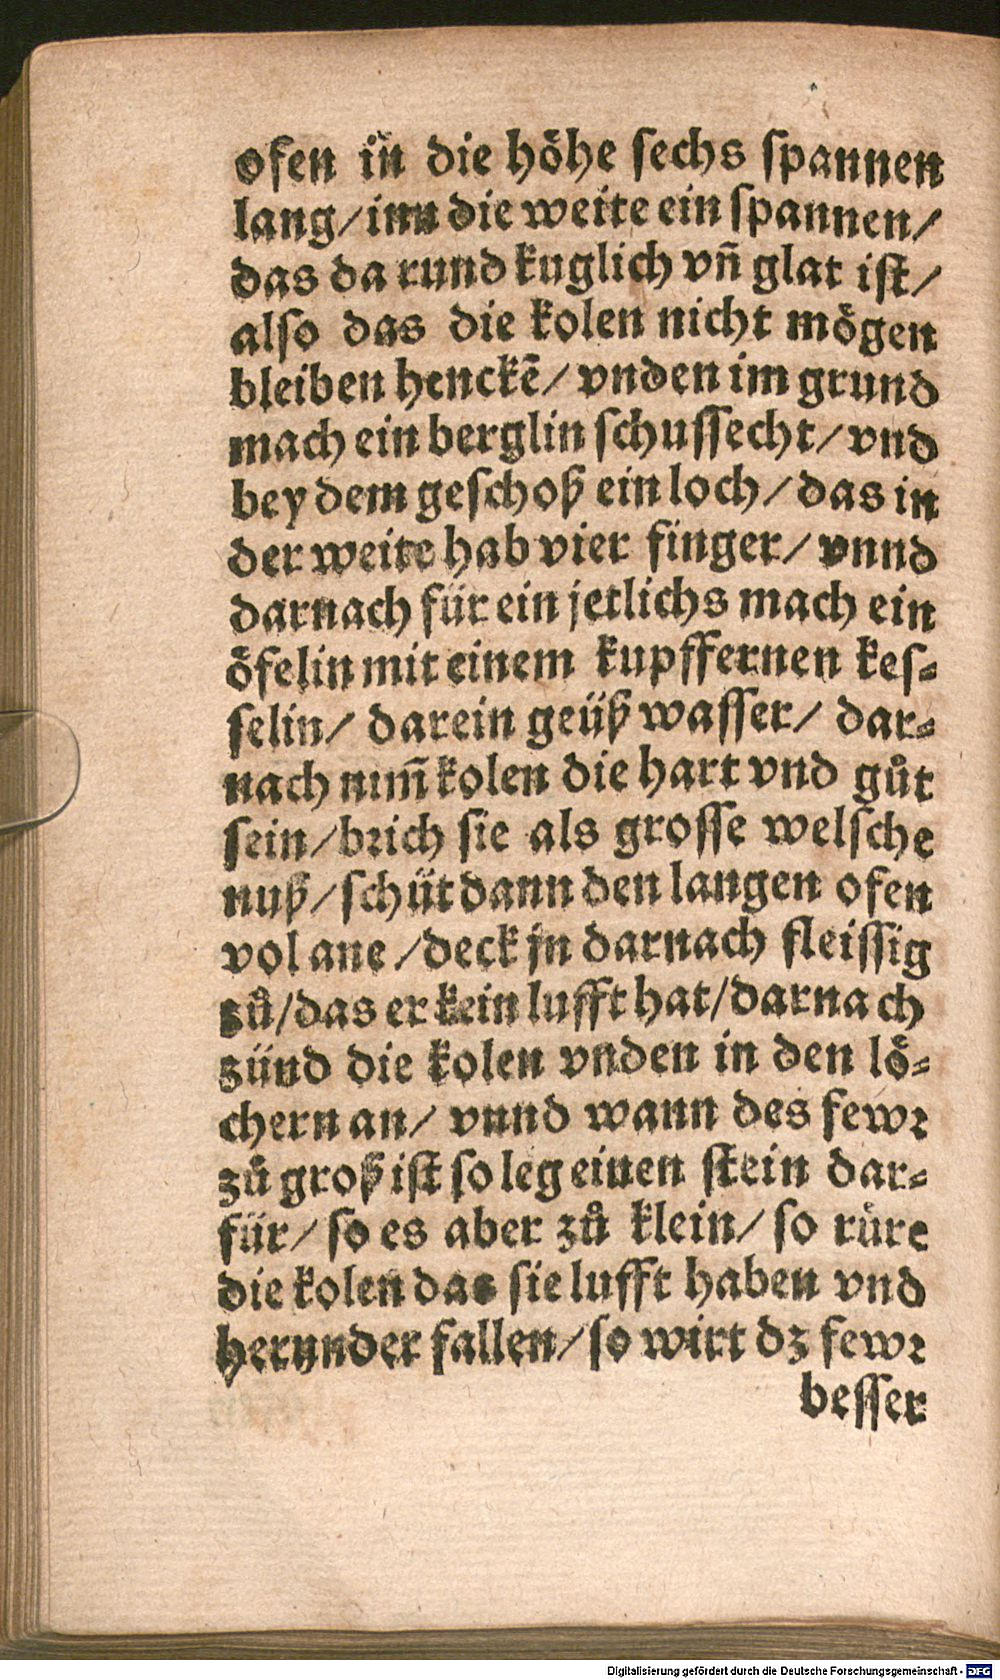 ofen in die höhe sechs spannen
lang/inn die weite ein spannen/
das da rund kuglich vñ glat ist/
also das die kolen nicht mögen
bleiben henckẽ/ vnden im grund
mach ein berglin schussecht/ vnd
bey dem geschoß ein loch/ das in
der weite hab vier finger/ vnnd
darnach für ein jetlichs mach ein
öfelin mit einem kupffernen kes-
selin/ darein geüß wasser/ dar-
nach nim̃ kolen die hart vnd gůt
sein/brich sie als grosse welsche
nuß/schüt dann den langen ofen
vol ane/deck jn darnach fleissig
zů/das er kein lufft hat/darnach
zünd die kolen vnden in den lö-
chern an/ vnnd wann des fewr
zů groß ist so leg einen stein dar-
für/ so es aber zů klein/ so růre
die kolen das sie lufft haben vnd
herunder fallen/so wirt dz fewr
besser
Digitalisierung gefördert durch die Deutsche Forschungsgemeinschaft - DFG